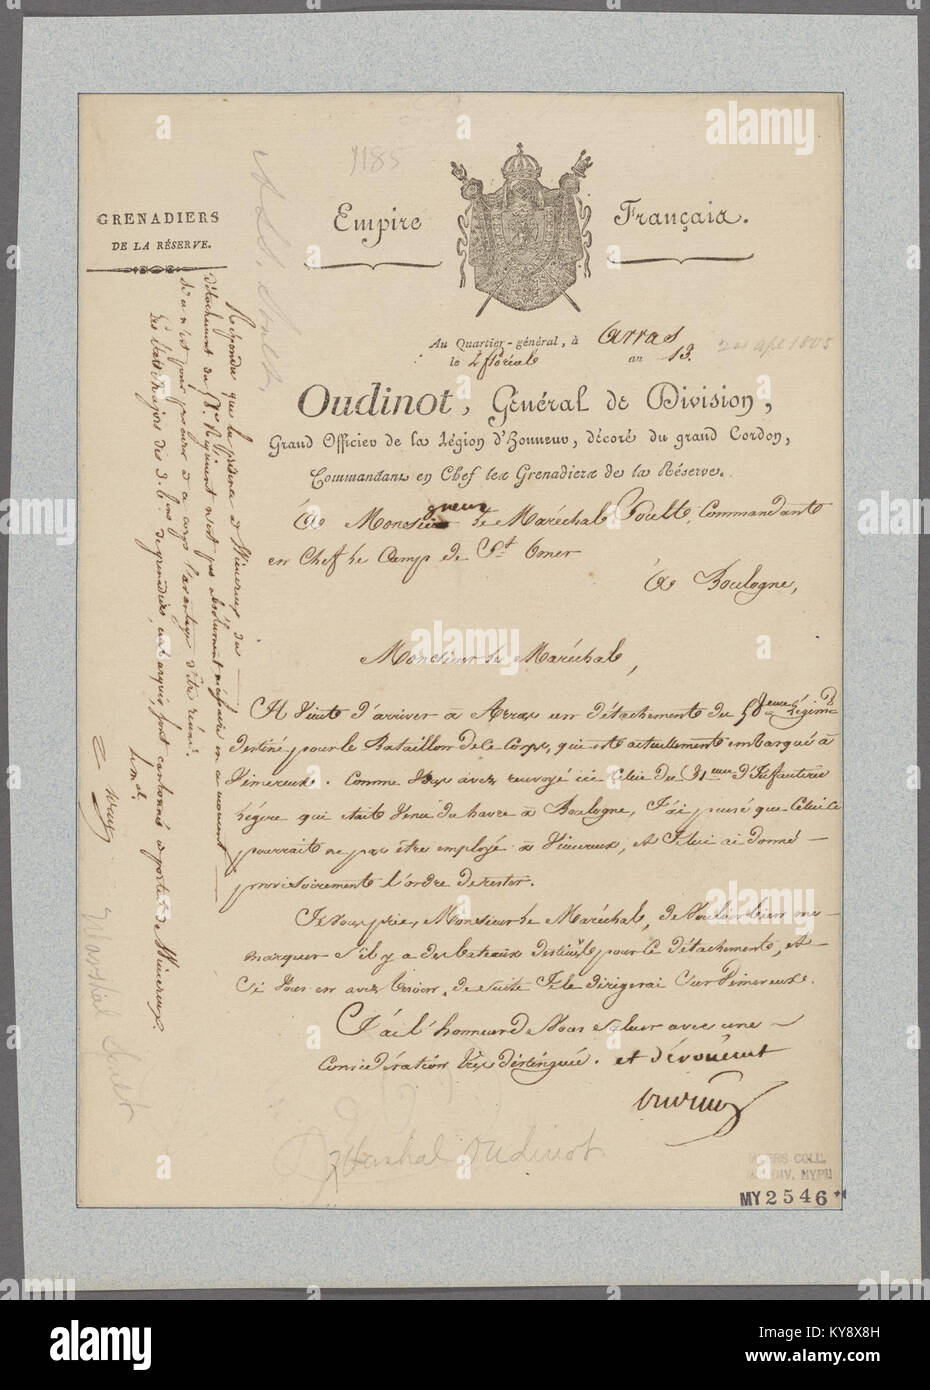 1185
GRENADIERS
DE LA RÉSERVE.
Empire Français.
Au Quartier-général, à Arras
le 2 floréal an 13.
Oudinot, Général de Division,
Grand Officier de la Légion d'Honneur, décoré du grand Cordon,
Commandant en Chef les Grenadiers de la Réserve.
A Monsieur gneur le Maréchal Soult, Commandant
en Chef le Camp de St Omer
A Boulogne,
Monsieur le Maréchal,
Il vient d'arriver à Arras un détachement du 58eme Régimt
destiné pour le Bataillon de ce Corps, qui est actuellement embarqué à
Vimereux. Comme vous avez renvoyé ici celui du 31eme d'Infanterie
légère qui était venu du havre à Boulogne, J'ai pensé que Celui ci
pourrait ne pas être employé à Vimereux, et Je lui ai donné
provisoirement l'ordre de rester.
Je vous prie, Monsieur le Maréchal, de vouloir bien me
marquer s'il y a des bateaux destinés pour le détachement, et
Si vous en avez besoin, de suite Je le dirigerai sur Vimereux.
J'ai l'honneur de vous saluer avec une
Considération très distinguée. et dévouement
Oudinot
Répondu que la présence à Wimereux du
détachement du 58e Régiment n'est pas absolument nécessaire en ce moment
si ce n'est pour procurer à ce corps l'avantage d'être réuni.
Les Etats Majors des de grenadiers embarqués, sont cantonnés à portée de Wimereux.
Marshal Soult
Marshal Oudinot
MYERS COLL.
MS. DIV. NYPL
MY 2546
alamy
alamy
alamy
alamy
alamy
KY8X8H
www.alamy.com